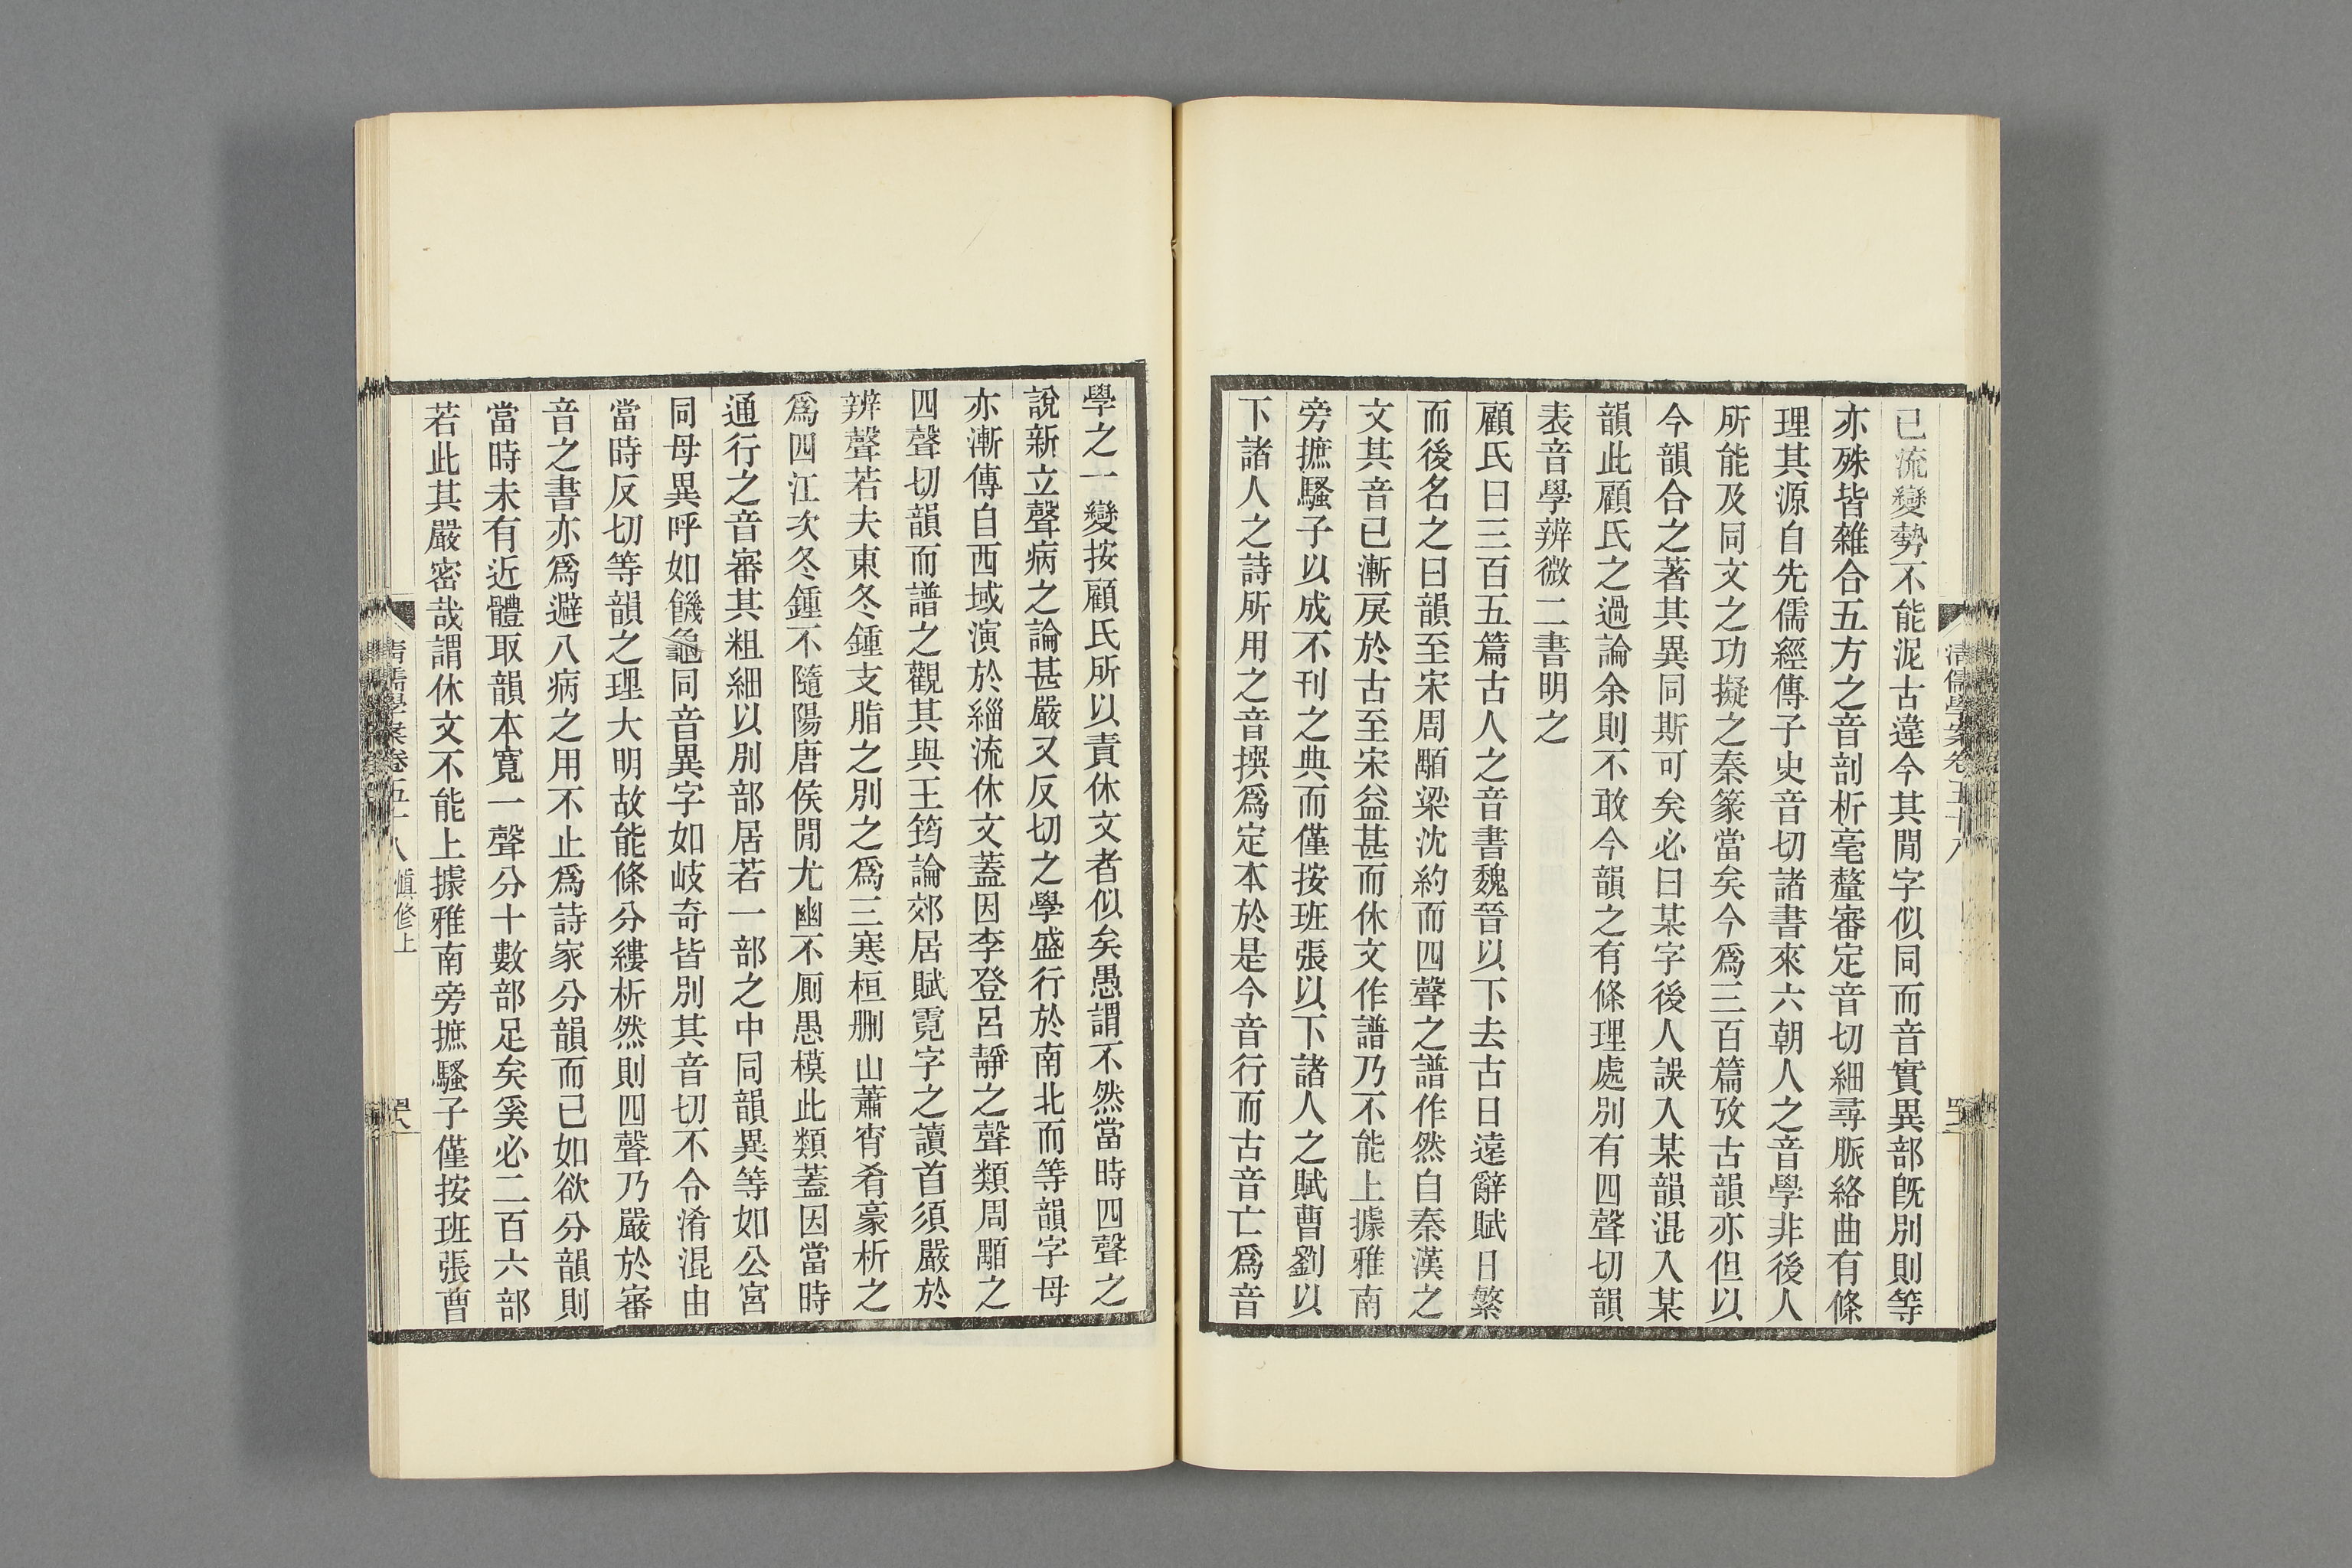 已流變勢不能泥古違今其閒字似同而音實異部旣別則等
亦殊皆雜合五方之音剖析毫釐審定音切細尋脈絡曲有條
理其源自先儒經傳子史音切諸書來六朝人之音學非後人
所能及同文之功擬之秦篆當矣今爲三百篇攷古韻亦但以
今韻合之著其異同斯可矣必曰某字後人誤入某韻混入某
韻此顧氏之過論余則不敢今韻之有條理處別有四聲切韻
表音學辨微二書明之
顧氏曰三百五篇古人之音書魏晉以下去古日遠辭賦日繁
而後名之曰韻至宋周顒梁沈約而四聲之譜作然自秦漢之
文其音已漸戾於古至宋益甚而休文作譜乃不能上據雅南
旁摭騷子以成不刊之典而僅按班張以下諸人之賦曹劉以
下諸人之詩所用之音撰爲定本於是今音行而古音亡爲音
清儒學案卷五十八
學之一變按顧氏所以責休文者似矣愚謂不然當時四聲之
說新立聲病之論甚嚴又反切之學盛行於南北而等韻字母
亦漸傳自西域演於緇流休文蓋因李登呂靜之聲類周顒之
四聲切韻而譜之觀其與王筠論郊居賦霓字之讀首須嚴於
辨聲若夫東冬鍾支脂之別之爲三寒桓刪山蕭宵肴豪析之
爲四江次冬鍾不隨陽唐侯閒尤幽不厠愚模此類蓋因當時
通行之音審其粗細以別部居若一部之中同韻異等如公宮
同母異呼如饑龜同音異字如岐奇皆別其音切不令淆混由
當時反切等韻之理大明故能條分縷析然則四聲乃嚴於審
音之書亦爲避八病之用不止爲詩家分韻而已如欲分韻則
當時未有近體取韻本寬一聲分十數部足矣奚必二百六部
若此其嚴密哉謂休文不能上據雅南旁摭騷子僅按班張曹
清儒學案卷五十八 愼修上